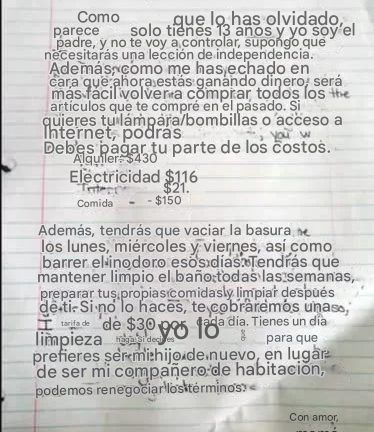 Como que lo has olvidado,
parece solo tienes 13 años y yo soy el
padre, y no te voy a controlar, supongo que
necesitarás una lección de independencia.
Además, como me has echado en
cara que ahora estás ganando dinero, será
más fácil volver a comprar todos los the
artículos que te compré en el pasado. Si
quieres tu lámpara/bombillas o acceso a
Internet, podrás
Debes pagar tu parte de los costos.
Alquiler: $430
Electricidad $116
$21.
Comida - - $150
Además, tendrás que vaciar la basura
los lunes, miércoles y viernes, así como
barrer el inodoro esos días. Tendrás que
mantener limpio el baño todas las semanas,
preparar tus propias comidas y limpiar después
de ti. Si no lo haces, te cobraremos una
I tarifa de de $30 por cada día. Tienes un día
limpieza haga. Si decides yo lo para que
prefieres ser mi hijo de nuevo, en lugar
de ser mi compañero de habitación,
podemos renegociar los términos.
Con amor,